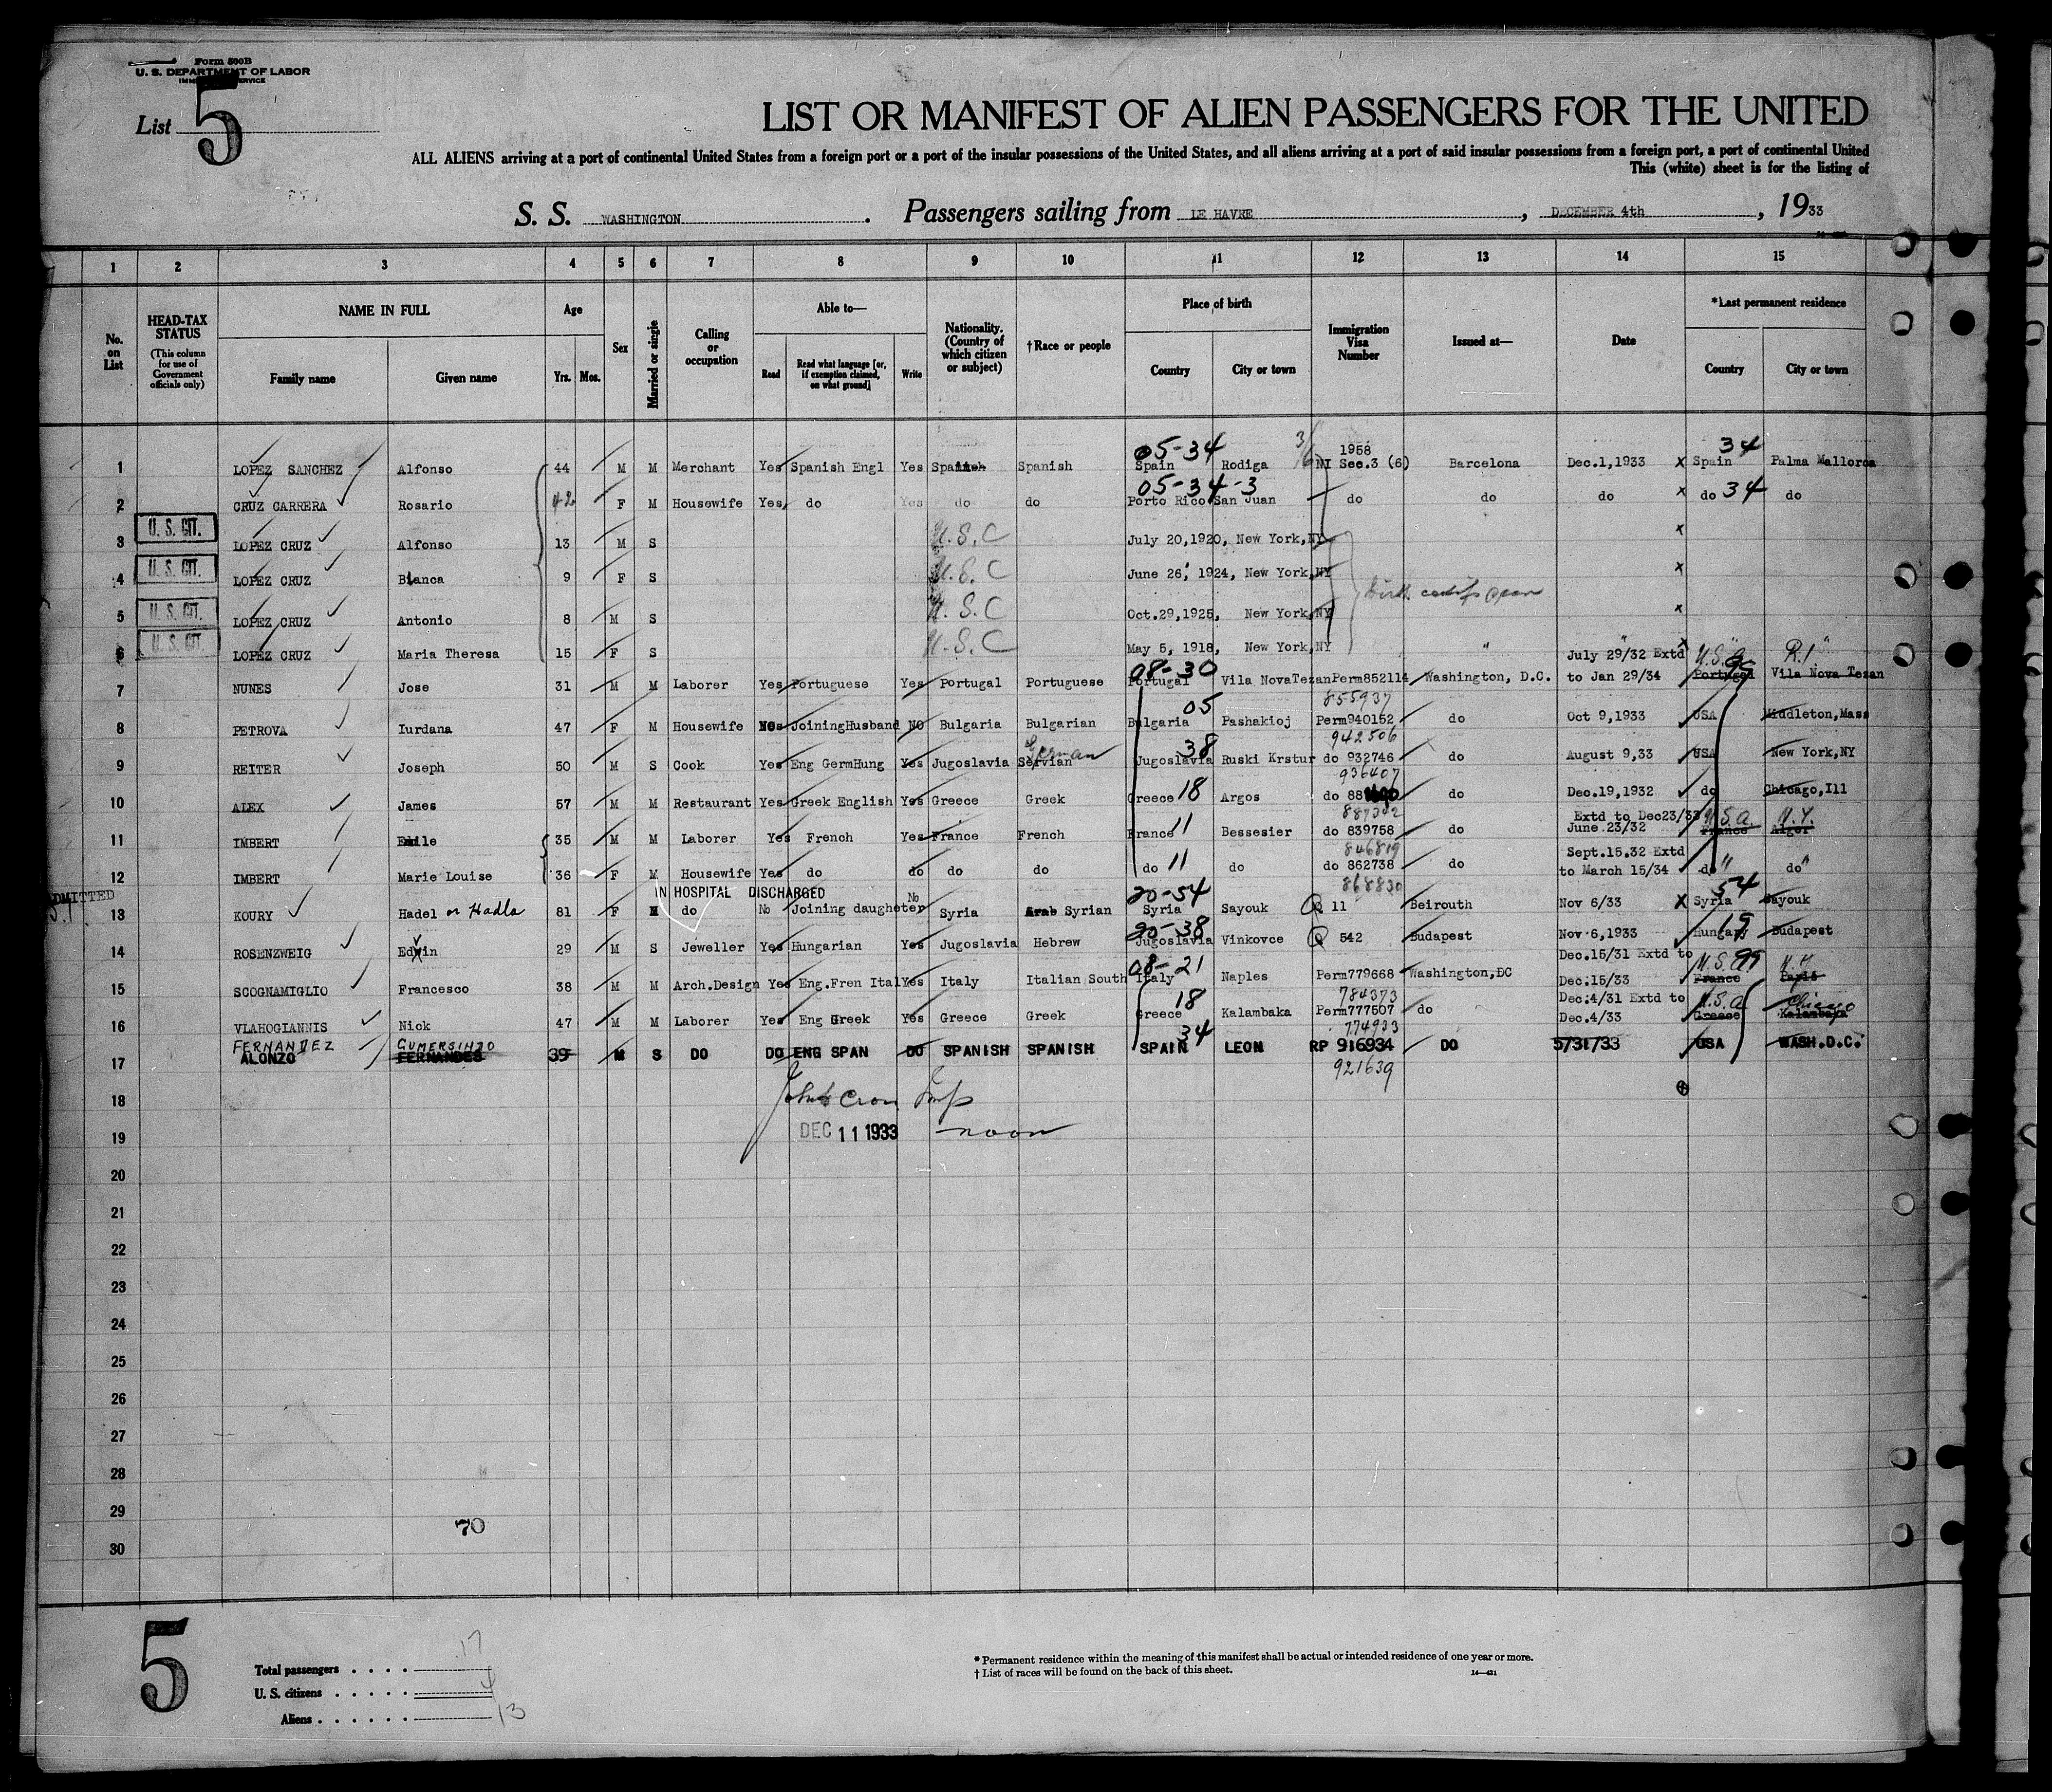 Form 500B
U. S. DEPARTMENT OF LABOR
List 5
LIST OR MANIFEST OF ALIEN PASSENGERS FOR THE UNITED
ALL ALIENS arriving at a port of continental United States from a foreign port or a port of the insular possessions of the United States, and all aliens arriving at a port of said insular possessions from a foreign port, a port of continental United
This (white) sheet is for the listing of
S. S. WASHINGTON. Passengers sailing from LE HAVRE, DECEMBER 4th, 1933
1 2 3 4 5 6 7 8 9 10 11 12 13 14 15
No. on List
HEAD-TAX STATUS (This column for use of Government officials only)
NAME IN FULL Family name Given name
Age Yrs. Mos.
Sex
Married or single
Calling or occupation
Able to— Read Read what language [or, if exemption claimed, on what ground] Write
Nationality. (Country of which citizen or subject)
†Race or people
Place of birth Country City or town
Immigration Visa Number
Issued at—
Date
*Last permanent residence Country City or town
05-34 1958 34
1 LOPEZ SANCHEZ Alfonso 44 M M Merchant Yes Spanish Engl Yes Spanish Spanish Spain Rodiga NI Sec.3 (6) Barcelona Dec.1,1933 X Spain Palma Mallorca
05-34-3
2 CRUZ CARRERA Rosario 42 F M Housewife Yes do Yes do do Porto Rico San Juan do do do x do 34 do
U. S. CIT.
3 LOPEZ CRUZ Alfonso 13 M S U.S.C July 20,1920, New York,NY x
U. S. CIT.
4 LOPEZ CRUZ Bianca 9 F S U.S.C June 26, 1924, New York,NY x
U. S. CIT.
5 LOPEZ CRUZ Antonio 8 M S U.S.C Oct.29,1925, New York,NY x
U. S. CIT.
6 LOPEZ CRUZ Maria Theresa 15 F S U.S.C May 5, 1918, New York,NY " x
08-30 July 29/32 Extd U.S.A. R.I
7 NUNES Jose 31 M M Laborer Yes Portuguese Yes Portugal Portuguese Portugal Vila NovaTezan Perm852114 Washington, D.C. to Jan 29/34 Portugal Vila Nova Tezan
05 855937
8 PETROVA Iurdana 47 F M Housewife NO JoiningHusband NO Bulgaria Bulgarian Bulgaria Pashakioj Perm940152 do Oct 9,1933 USA Middleton,Mass
German 38 942506
9 REITER Joseph 50 M S Cook Yes Eng GermHung Yes Jugoslavia Servian Jugoslavia Ruski Krstur do 932746 do August 9,33 USA New York,NY
936407
10 ALEX James 57 M M Restaurant Yes Greek English Yes Greece Greek Greece 18 Argos do do Dec.19,1932 do Chicago,Ill
887302 Extd to Dec23/33 U.S.A. N.Y.
11 IMBERT Emile 35 M M Laborer Yes French Yes France French France 11 Bessesier do 839758 do June 23/32 France Alger
846819 Sept.15.32 Extd
12 IMBERT Marie Louise 36 F M Housewife Yes do do do do do 11 do do 862738 do to March 15/34 do " do "
ADMITTED IN HOSPITAL DISCHARGED No 20-54 868830 54
13 KOURY Hadel or Hadla 81 F M do No Joining daugheter Syria Arab Syrian Syria Sayouk Q 11 Beirouth Nov 6/33 X Syria Sayouk
20-38 19
14 ROSENZWEIG Edwin 29 M S Jeweller Yes Hungarian Yes Jugoslavia Hebrew Jugoslavia Vinkovce Q 542 Budapest Nov.6,1933 Hungary Budapest
08-21 Dec.15/31 Extd to U.S. 99 N.Y
15 SCOGNAMIGLIO Francesco 38 M M Arch.Design Yes Eng.Fren Ital Yes Italy Italian South Italy Naples Perm779668 Washington,DC Dec.15/33 France Paris
18 784373 Dec.4/31 Extd to U.S.A. Chicago
16 VLAHOGIANNIS Nick 47 M M Laborer Yes Eng Greek Yes Greece Greek Greece Kalambaka Perm777507 do Dec.4/33 Greece Kalambaka
FERNANDEZ GUMERSINDO 34 774933
17 ALONZO FERNANDES 39 M S DO DO ENG SPAN DO SPANISH SPANISH SPAIN LEON RP 916934 DO 5/31/33 USA WASH.D.C.
921639
18
19 DEC 11 1933 noon
20
21
22
23
24
25
26
27
28
29
70
30
5
Total passengers . . . . 17
U. S. citizens . . . . . 4
Aliens . . . . . . 13
* Permanent residence within the meaning of this manifest shall be actual or intended residence of one year or more.
† List of races will be found on the back of this sheet.
14—431